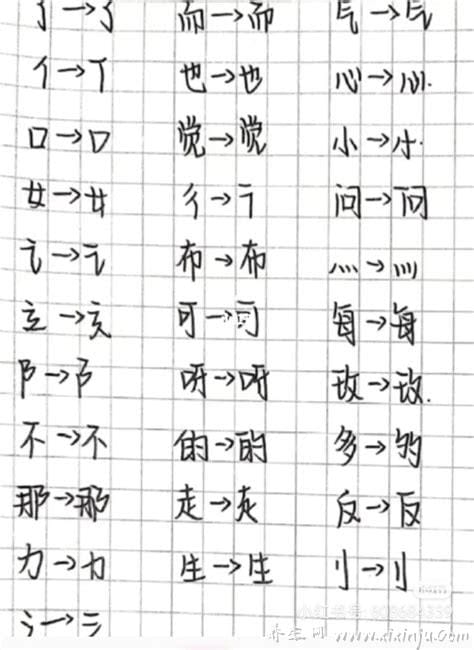 而→而 气→气
亻→丫 也→也 心→心
口→口 觉→觉 小→小
女→女 彳→ 问→问
讠→讠 布→布 灬→灬
立→立 可→可 每→每
阝→阝 呀→呀 玫→玫
不→不 的→的 多→多
那→那 走→走 反→反
力→力 生→生 刂→刂
氵→
小红书号:
养生网 www.xixinju.com